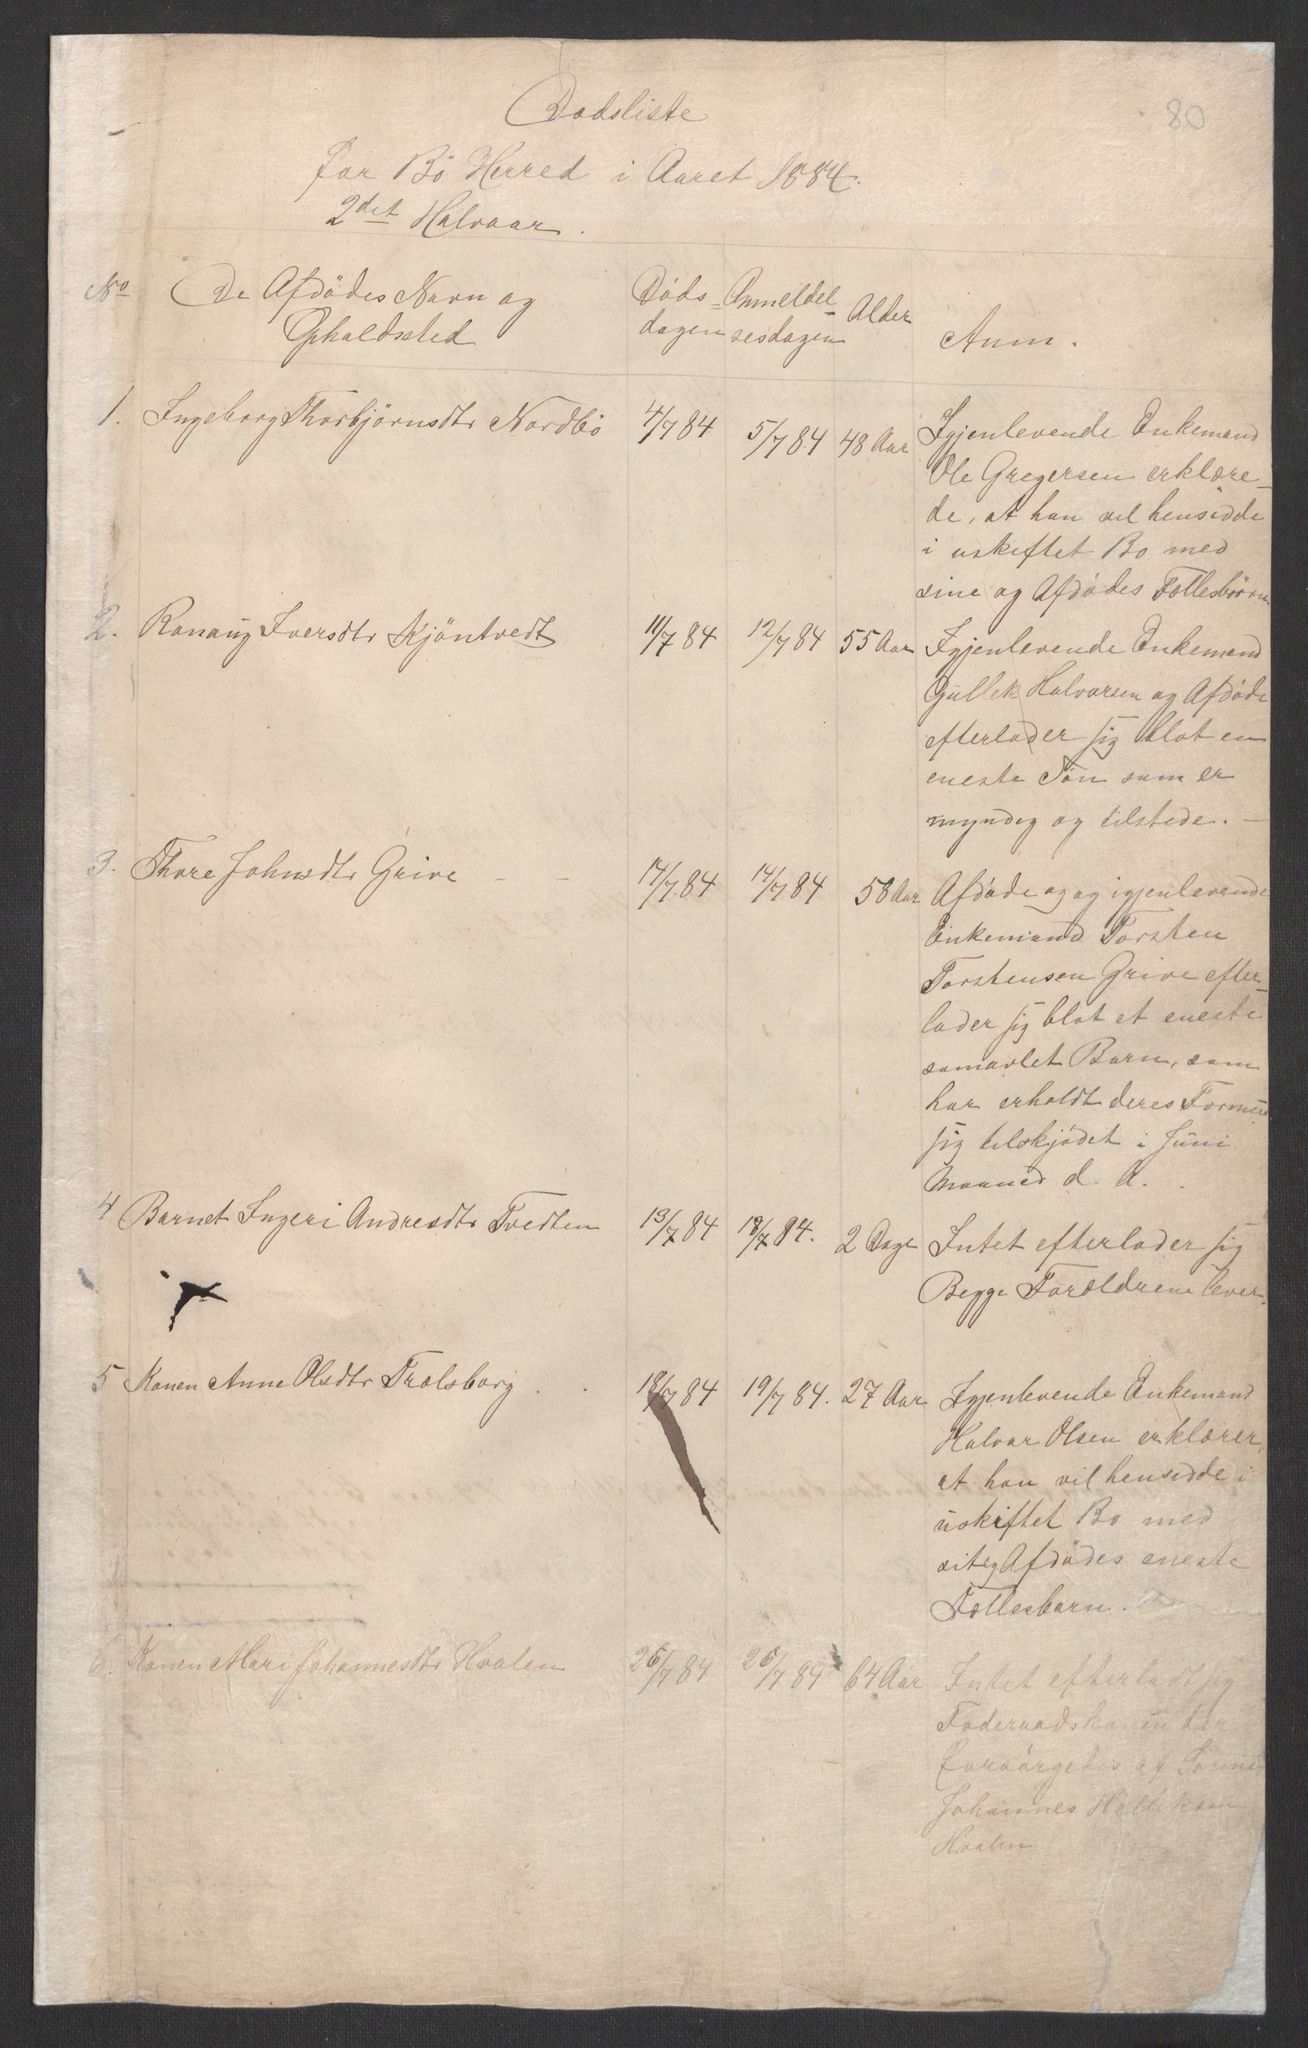 80
Dødsliste
for Bø Herred i Aaret 1884.
2det Halvaar.
No De Afdødes Navn og Opholdssted Dødsdagen Anmeldelsesdagen Alder Anm.
1. Ingeborg Thorbjørnsdtr Nordbö 4/7 84 5/7 84 48 Aar Igjenlevende Enkemand
Ole Gregersen erklære-
de, at han vil hensidde
i uskiftet Bo med
sine og Afdødes Fællesbörn
2. Ronaug Iversdtr Kjöntvedt 11/7 84 12/7 84 55 Aar Igjenlevende Enkemand
Gullek Halvorsen og Afdøde
efterlader sig blot en
eneste Søn som er
myndig og tilstede. -
3. Thore Johnsdtr Grive - - 14/7 84 14/7 84 58 Aar Afdøde og og igjenlevende
Enkemand Torsten
Torstensen Grive efter-
lader sig blot et eneste
samavlet Barn, som
har erholdt deres Formue
sig tilskjødet i Juni
Maaned d. A.
4 Barnet Ingeri Andresdtr Tvedten 13/7 84 18/7 84. 2 Dage Intet efterlader sig
Begge Forældrene lever.
5 Konen Anne Olsdtr Trolsborg 18/7 84 19/7 84. 27 Aar Igjenlevende Enkemand
Halvor Olsen erklærer,
at han vil hensidde i
uskiftet Bo med
sit og Afdødes eneste
Fællesbarn.
6. Konen Mari Johannesdtr Hvalen 26/7 84 26/7 84 64 Aar Intet efterladt sig
Foderaadskonen der
forsørgedes af Sønnen
Johannes
Hvalen